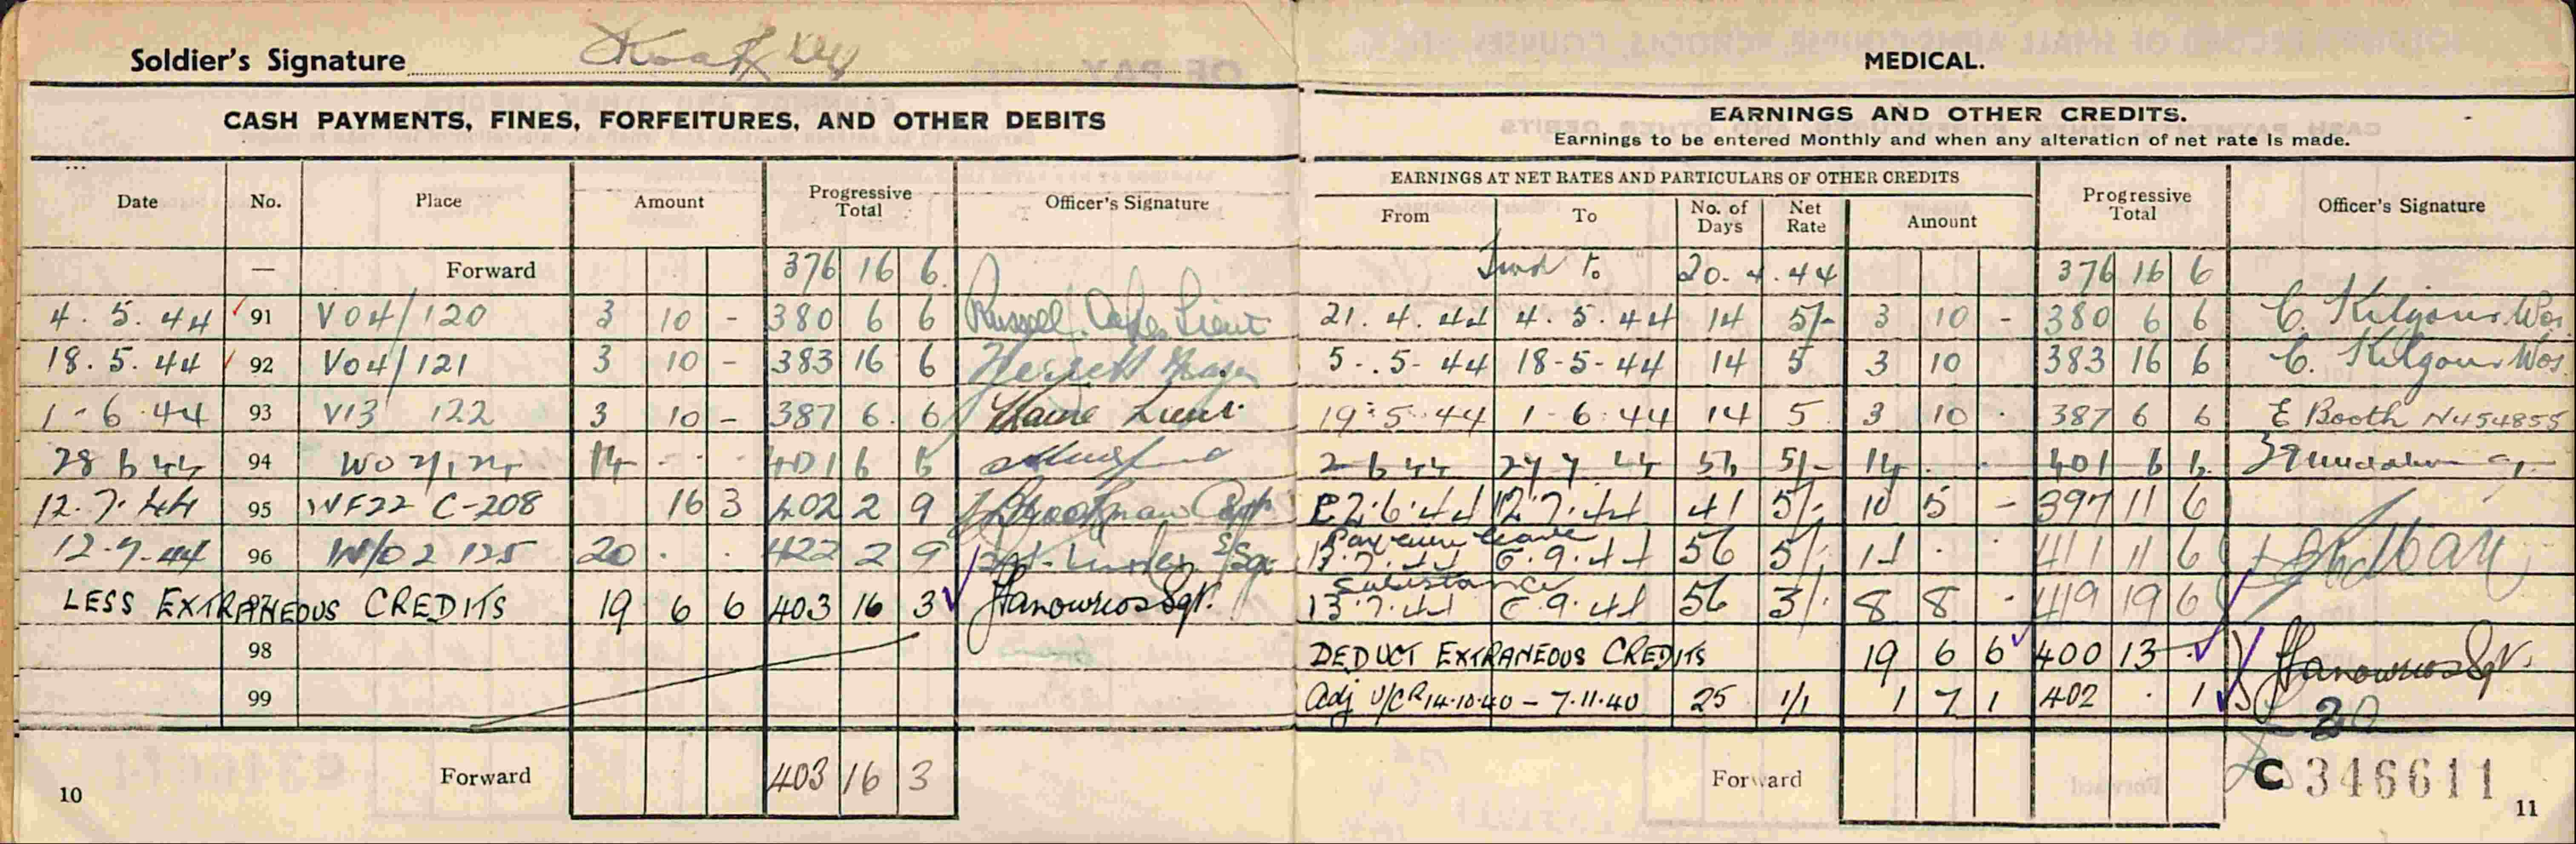 Soldier's Signature
CASH PAYMENTS, FINES, FORFEITURES, AND OTHER DEBITS
Date No. Place Amount Progressive Total Officer's Signature
— Forward 376 16 6
4. 5. 44 91 V04/120 3 10 - 380 6 6 Russell Lieut
18. 5. 44 92 V04/121 3 10 - 383 16 6
1 - 6 44 93 V13 122 3 10 - 387 6 6 Lieut
28 6 44 94 14 - - 401 6 6
12. 7. 44 95 WF22 C-208 16 3 402 2 9 Capt
12-7-44 96 W/02 125 20 . . 422 2 9 S/Sgt
LESS EXTRANEOUS CREDITS 19 6 6 403 16 3 Sgt.
98
99
Forward 403 16 3
10
MEDICAL.
EARNINGS AND OTHER CREDITS.
Earnings to be entered Monthly and when any alteration of net rate is made.
EARNINGS AT NET RATES AND PARTICULARS OF OTHER CREDITS Progressive Total Officer's Signature
From To No. of Days Net Rate Amount
Fwd to 20. 4. 44 376 16 6
21. 4. 44 4. 5. 44 14 5/- 3 10 - 380 6 6 C Kilgour
5. 5- 44 18-5-44 14 5 3 10 383 16 6 C. Kilgour
19 5 44 1 6 44 14 5 3 10 . 387 6 6 E Booth N454855
2 6 44 27 7 44 56 5/- 14 . . 401 6 6
2.6.44 12.7.44 41 5/- 10 5 - 397 11 6
13.7.44 6.9.44 56 5/- 14 . . 411 11 6
Subsistance
13.7.44 6.9.44 56 3/- 8 8 - 419 19 6
DEDUCT EXTRANEOUS CREDITS 19 6 6 400 13 - Sgt.
Adj U/CR 14.10.40 - 7.11.40 25 1/1 1 7 1 402 . 1
20
Forward
C 346611
11